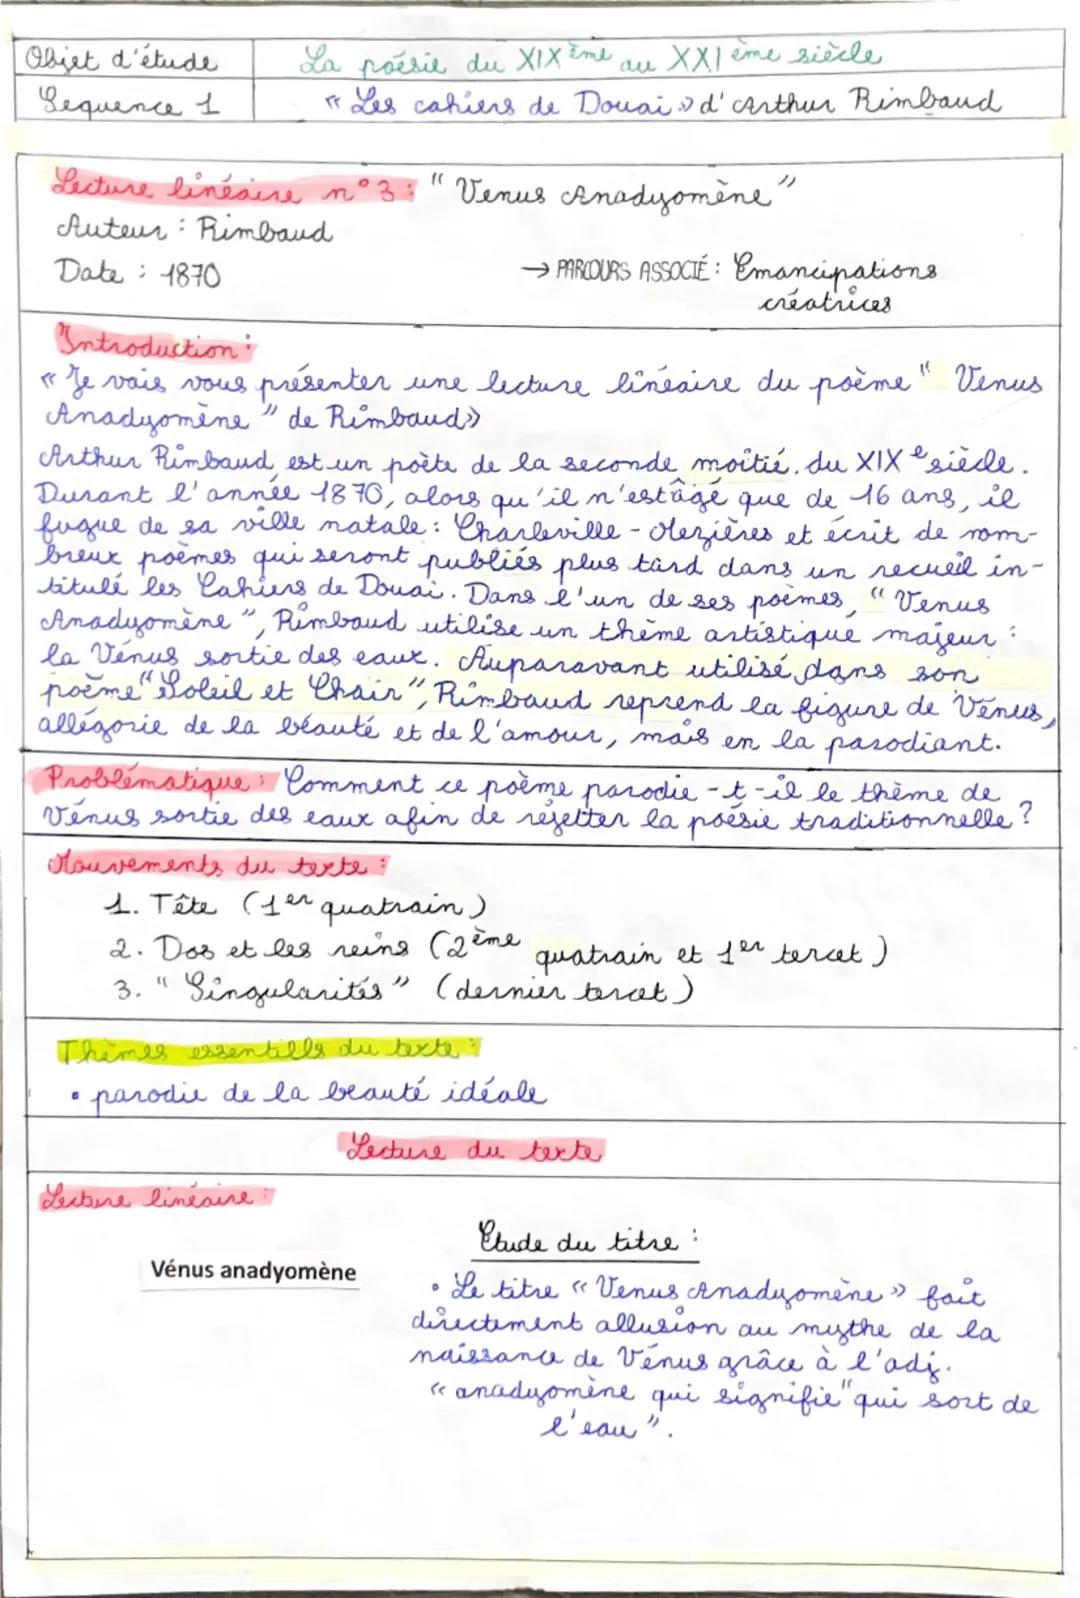 Objet d'étude
La poésie du XIXème au XXIème siècle
Sequence 1
« Les cahiers de Douai » d'Arthur Rimbaud
Lecture linéaire n°3 : " Venus Anadyomène "
Auteur : Rimbaud
Date : 1870
→ PARCOURS ASSOCIÉ : Emancipations
créatrices
Introduction :
« Je vais vous présenter une lecture linéaire du poème " Venus
Anadyomène " de Rimbaud»
Arthur Rimbaud est un poète de la seconde moitié du XIXe siècle.
Durant l'année 1870, alors qu'il n'est âgé que de 16 ans, il
fugue de sa ville natale : Charleville - Mezières et écrit de nom-
breux poèmes qui seront publiés plus tard dans un recueil in-
titulé les Cahiers de Douai. Dans l'un de ses poèmes, " Venus
Anadyomène ", Rimbaud utilise un thème artistique majeur :
la Vénus sortie des eaux. Auparavant utilisé dans son
poème "Soleil et Chair", Rimbaud reprend la figure de Vénus,
allégorie de la beauté et de l'amour, mais en la parodiant.
Problématique : Comment ce poème parodie-t-il le thème de
Vénus sortie des eaux afin de rejetter la poésie traditionnelle ?
Mouvements du texte :
1. Tête (1er quatrain)
2. Dos et les reins (2ème quatrain et 1er tercet)
3. " Singularités " (dernier tercet)
Thèmes essentills du texte :
• parodie de la beauté idéale
Lecture du texte
Lecture linéaire :
Etude du titre :
Vénus anadyomène
• Le titre « Venus Anadyomène » fait
directement allusion au mythe de la
naissance de Vénus grâce à l'adj.
« anadyomène qui signifie "qui sort de
l'eau ".